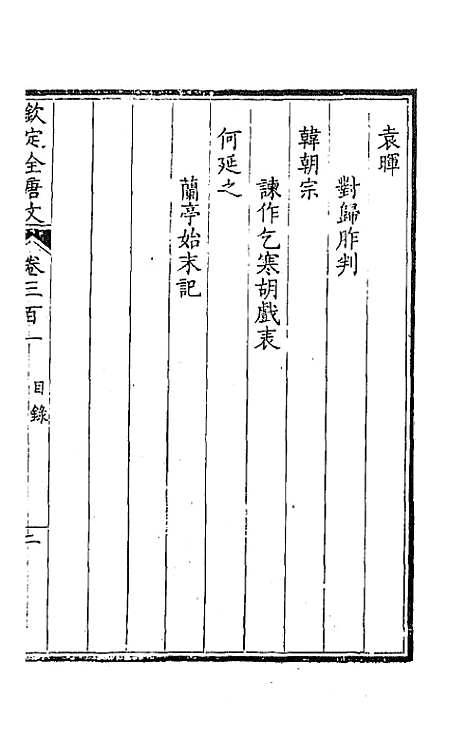 袁暉
對歸胙判
韓朝宗
諫作乞寒胡戲表
何延之
蘭亭始末記
欽定全唐文 卷三百一 目錄 二